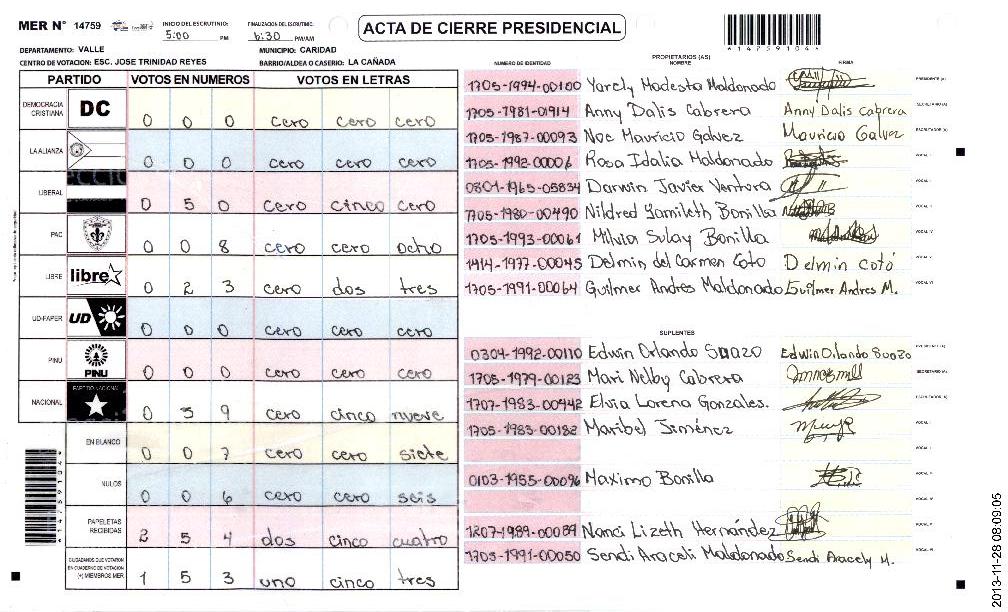 MER N° 14759
INICIO DEL ESCRUTINIO: 5:00 PM
FINALIZACION DEL ESCRUTINIO: 6:30 PM/AM
ACTA DE CIERRE PRESIDENCIAL
*1475910 4*
DEPARTAMENTO: VALLE
MUNICIPIO: CARIDAD
CENTRO DE VOTACION: ESC. JOSE TRINIDAD REYES
BARRIO/ALDEA O CASERIO: LA CAÑADA
PARTIDO VOTOS EN NUMEROS VOTOS EN LETRAS
DEMOCRACIA CRISTIANA DC 0 0 0 cero cero cero
LA ALIANZA 0 0 0 cero cero cero
LIBERAL 0 5 0 cero cinco cero
PAC 0 0 8 cero cero ocho
LIBRE libre 0 2 3 cero dos tres
UD-FAPER UD 0 0 0 cero cero cero
PINU PINU 0 0 0 cero cero cero
NACIONAL PARTIDO NACIONAL 0 5 9 cero cinco nueve
EN BLANCO 0 0 7 cero cero siete
NULOS 0 0 6 cero cero seis
PAPELETAS RECIBIDAS 2 5 4 dos cinco cuatro
CIUDADANOS QUE VOTARON EN CUADERNO DE VOTACION (+) MIEMBROS MER 1 5 3 uno cinco tres
NUMERO DE IDENTIDAD PROPIETARIOS (AS) NOMBRE FIRMA
1705-1994-00100 Yarely Modesta Maldonado PRESIDENTE (A)
1705-1981-01914 Anny Dalis Cabrera Anny Dalis Cabrera SECRETARIO (A)
1705-1987-00093 Noe Mauricio Galvez Mauricio Galvez ESCRUTADOR (A)
1705-1992-00006 Rosa Idalia Maldonado VOCAL I
0801-1965-05834 Darwin Javier Ventura VOCAL II
1705-1980-00490 Nildred Yamileth Bonilla VOCAL III
1705-1993-00061 Milvia Sulay Bonilla VOCAL IV
1414-1977-00045 Delmin del Carmen Coto Delmin Cotó VOCAL V
1705-1991-00064 Guilmer Andres Maldonado Guilmer Andres M. VOCAL VI
SUPLENTES
0304-1992-00110 Edwin Orlando Suazo Edwin Orlando Suazo PRESIDENTE (A)
1705-1979-00123 Mari Nelby Cabrera SECRETARIO (A)
1707-1983-00442 Elvia Lorena Gonzales. ESCRUTADOR (A)
1705-1983-00182 Maribel Jiménez VOCAL I
VOCAL II
0103-1955-00096 Maximo Bonilla VOCAL III
VOCAL IV
1207-1989-00089 Nanci Lizeth Hernández VOCAL V
1705-1991-00050 Sendi Araceli Maldonado Sendi Aracely M. VOCAL VI
2013-11-28 08:09:05